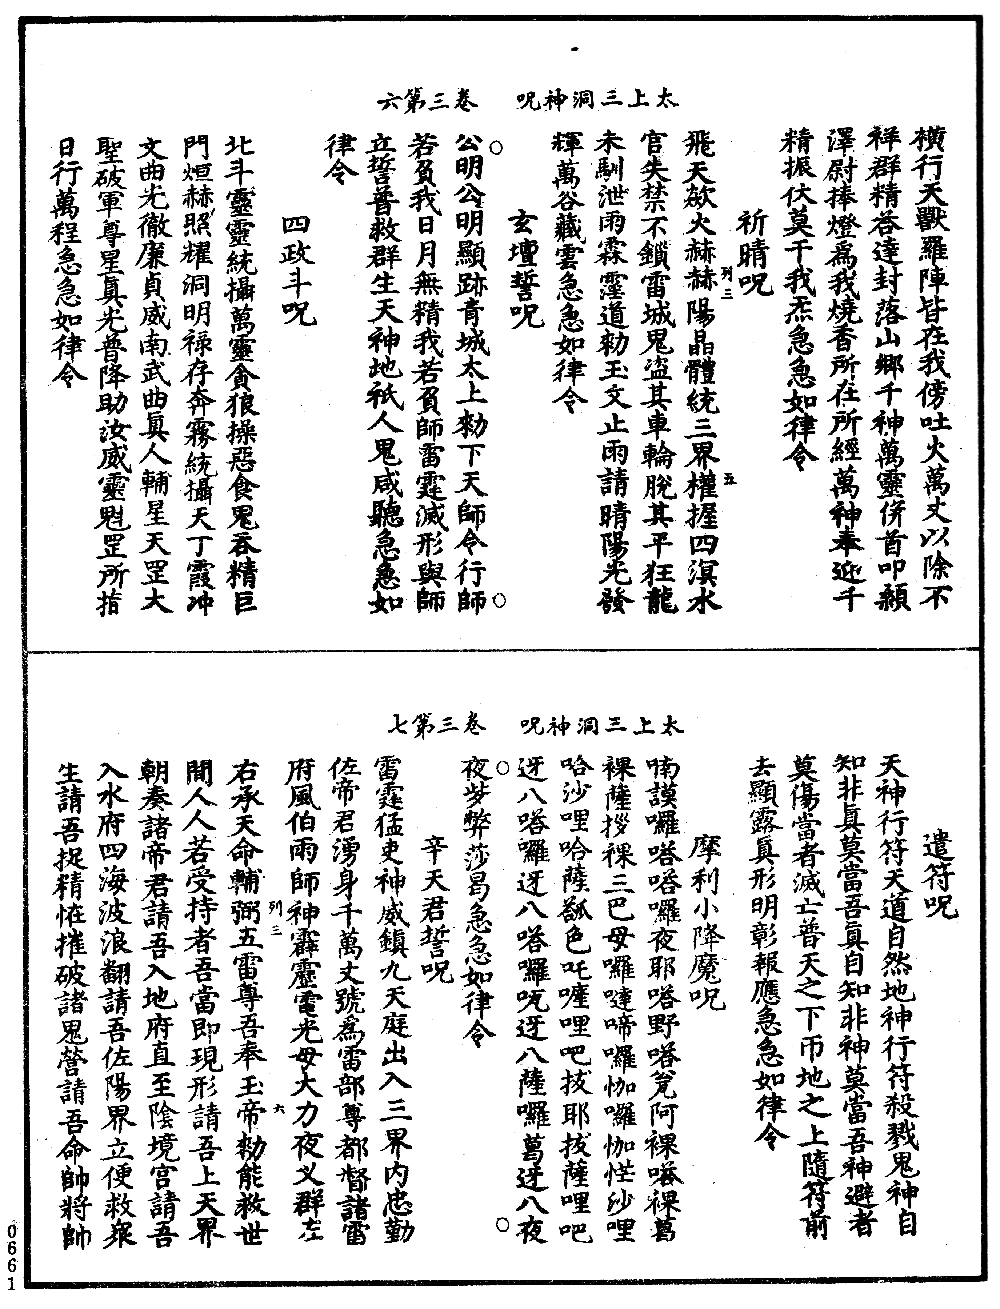 太上三洞神呪　卷三第六
橫行天獸羅陣皆在我傍吐火萬丈以除不
祥群精荅達封落山鄉千神萬靈併首叩顙
澤尉捧燈爲我燒香所在所經萬神奉迎千
精振伏莫干我炁急急如律令
祈晴呪
飛天歘火赫赫陽晶體統三界權握四溟水
官失禁不鎖雷城鬼盜其車輪脫其平狂龍
未馴泄雨霖霪道勑玉文止雨請晴陽光發
輝萬谷藏雲急急如律令
玄壇誓呪
公明公明顯跡青城太上勑下天師令行師
若負我日月無精我若負師雷霆滅形與師
立誓普救群生天神地祇人鬼咸聽急急如
律令
四政斗呪
北斗靈靈統攝萬靈貪狼操惡食鬼吞精巨
門烜赫照耀洞明祿存奔霧統攝天丁霞冲
文曲光徹廉貞威南武曲眞人輔星天罡大
聖破軍尊星眞光普降助汝威靈魁罡所指
日行萬程急急如律令
列三
五
太上三洞神呪　卷三第七
遣符呪
天神行符天道自然地神行符殺戮鬼神自
知非眞莫當吾眞自知非神莫當吾神避者
莫傷當者滅亡普天之下帀地之上隨符前
去顯露眞形明彰報應急急如律令
摩利小降魔呪
喃謨囉嗒嗒囉夜耶嗒野嗒兗阿裸嗒裸葛
裸薩拶裸三巴母囉噠啼囉伽囉伽恾沙哩
哈沙哩哈薩瓠色吒嚨哩吧拔耶拔薩哩吧
迓八嗒囉迓八嗒囉吭迓八薩囉葛迓八夜
夜㱔弊莎曷急急如律令
辛天君誓呪
雷霆猛吏神威鎮九天庭出入三界內忠勤
佐帝君湧身千萬丈號爲雷部尊都督諸雷
府風伯雨師神霹靂電光母大力夜义群左
右承天命輔弼五雷尊吾奉玉帝勑能救世
間人人若受持者吾當即現形請吾上天界
朝奏諸帝君請吾入地府直至陰境宫請吾
入水府四海波浪翻請吾佐陽界立便救衆
生請吾捉精恠摧破諸鬼營請吾命帥將帥
列三
六
0661